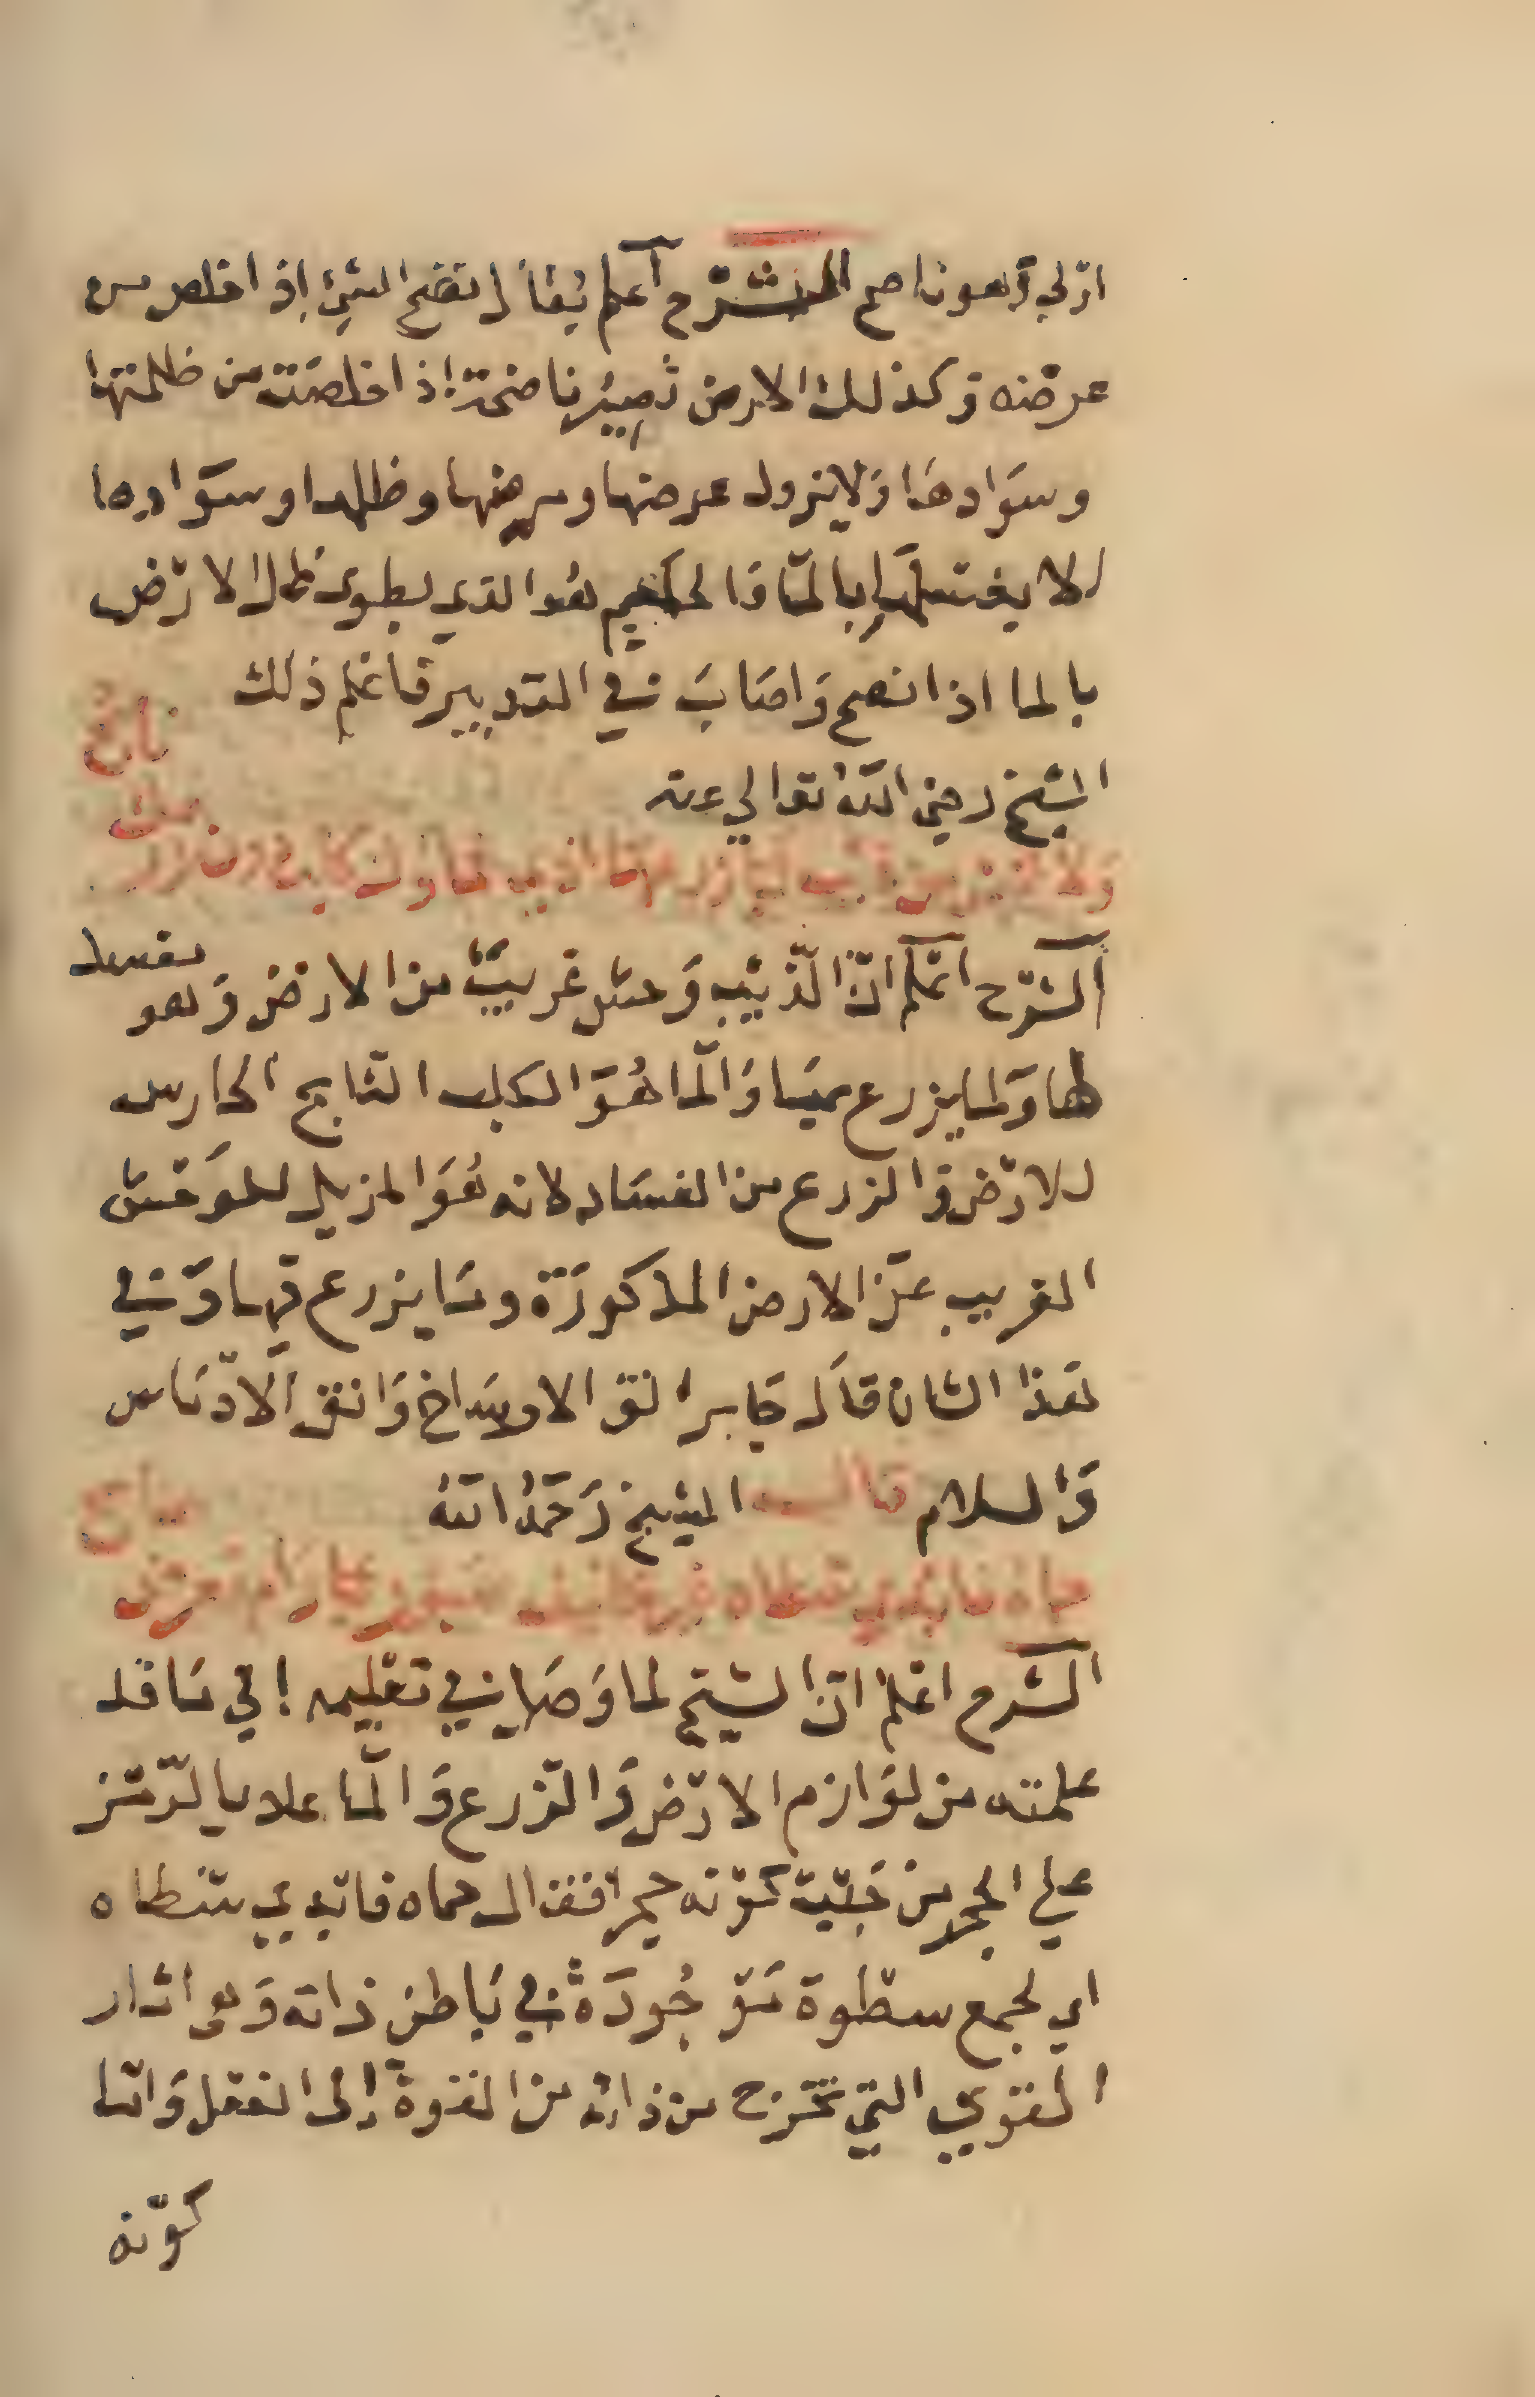 ازلي وهو ناصح الشرح اعلم يقال نضح الشي اذا خلص من
عرضه وكذلك الارض تصير ناضحة اذا خلصت من ظلمتها
وسوادها ولا يزول عرضها ومرضها وظلها وسوادها
الا بغسلها بالما والحكيم هو الذي يطوي ظل الارض
بالما اذا نصح واصاب في التدبير فاعلم ذلك
الشيخ رضي الله تعالي عنه
الشرح اعلم ان الذيب وحش غريب من الارض وهو مفسد
لها ولما يزرع فيها والما هو الكلب النابح الحارس
للارض والزرع من الفساد لانه هو المزيل للوحش
الغريب عن الارض المذكورة وما يزرع فيها وفي
هذا الشان قال جابر انق الاوساخ وانف الادناس
والسلام قال الشيخ رحمه الله
الشرح اعلم ان الشيخ لما وصل في تعليمه الي ما قد
علمته من لوازم الارض والزرع والما علا بالرمز
علي الحجر من حيث كونه حجرا فقال حماه فابدي سطاه
اي لجمع سطوة موجودة في باطن ذاته وهي اثار
القوي التي تخرج من ذاته من القوة الى الفعل واما
كونه